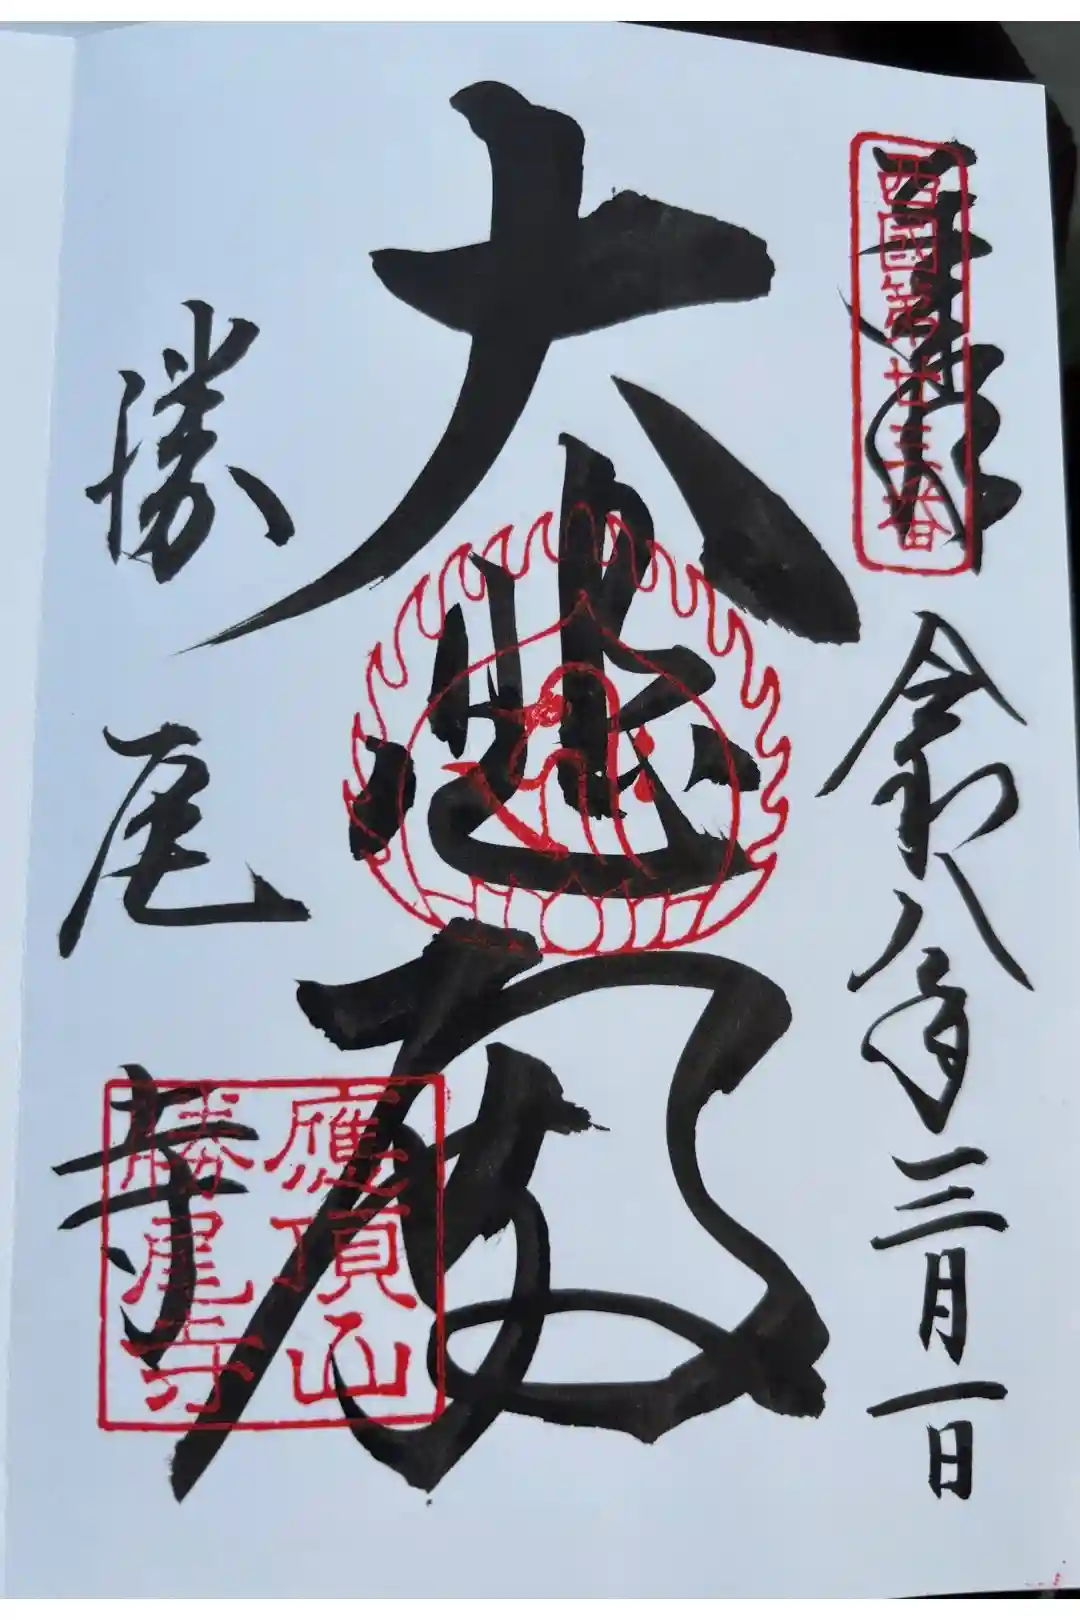 奉拝
西國第廿三番
令和八年三月一日
大悲殿
勝尾寺
應頂山
勝尾寺